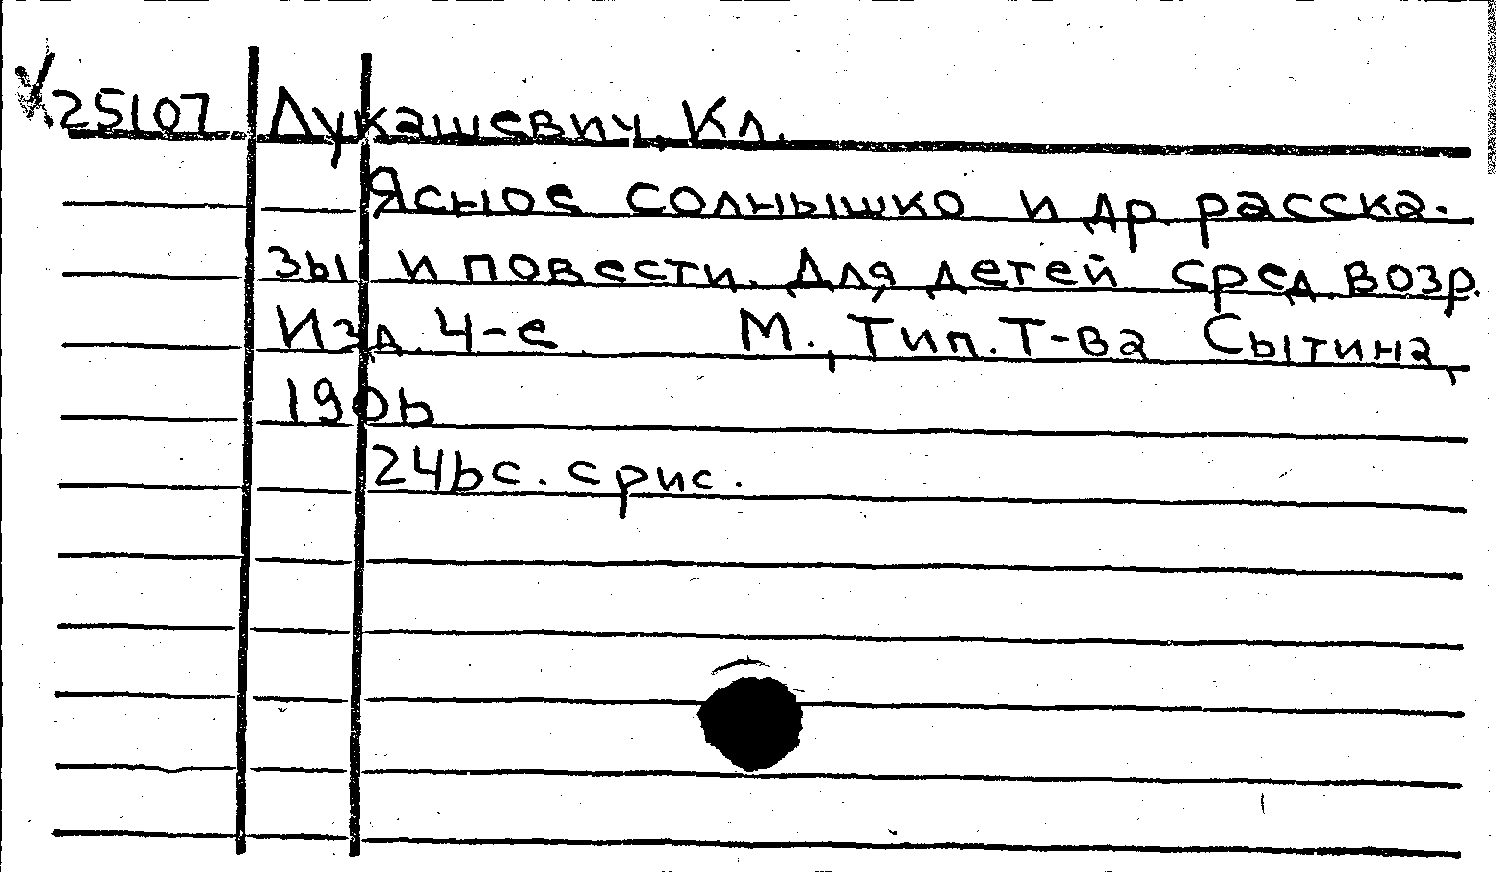 25107 Лукашевич, Кл.
Ясное солнышко и др расска-
зы и повести. Для детей сред. возр.
Изд. 4-е М., Тип. Т-ва Сытина,
1906
246 с. с рис.